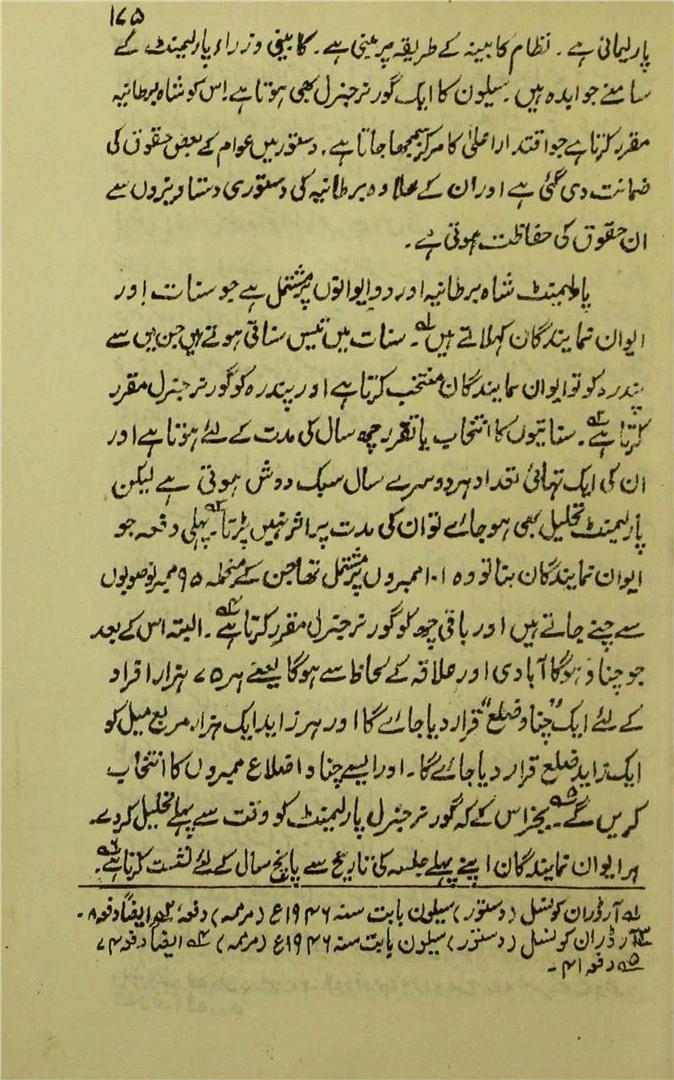 ۱۷۵
پارلیمانی ہے ۔ نظام کابینہ کے طریقہ پر مبنی ہے ۔ کابینی وزراء پارلیمنٹ کے
سامنے جوابدہ ہیں ۔ سیلون کا ایک گورنر جنرل بھی ہوتا ہے اس کو شاہ برطانیہ
مقرر کرتا ہے جو اقتدار اعلیٰ کا مرکز سمجھا جاتا ہے ۔ دستور میں عوام کے بعض حقوق کی
ضمانت دی گئی ہے اور ان کے علاوہ برطانیہ کی دستوری دستاویزوں سے
ان حقوق کی حفاظت ہوتی ہے ۔
پارلیمنٹ شاہ برطانیہ اور دو ایوانوں پر مشتمل ہے جو سنات اور
ایوان نمایندگان کہلاتے ہیں لہ ۔ سنات میں تیس سناتی ہوتے ہیں جن میں سے
پندرہ کو تو ایوان نمایندگان منتخب کرتا ہے اور پندرہ کو گورنر جنرل مقرر
کرتا ہے ۲ہ ۔ سناتیوں کا انتخاب یا تقرر چھ سال کی مدت کے لئے ہوتا ہے اور
ان کی ایک تہائی تعداد ہر دوسرے سال سبک دوش ہوتی ہے لیکن
پارلیمنٹ تحلیل بھی ہو جائے تو ان کی مدت پر اثر نہیں پڑتا ۳ہ ۔ پہلی دفعہ جو
ایوان نمایندگان بنا تو وہ ۱۰۱ ممبروں پر مشتمل تھا جن کے منجملہ ۹۵ ممبر نو صوبوں
سے چنے جاتے ہیں اور باقی چھ کو گورنر جنرل مقرر کرتا ہے ۴ہ ۔ البتہ اس کے بعد
جو چناؤ ہوگا آبادی اور علاقہ کے لحاظ سے ہوگا یعنے ہر ۷۵ ہزار افراد
کے لئے ایک "چناؤ ضلع" قرار دیا جائے گا اور ہر زاید ایک ہزار مربع میل کو
ایک زاید ضلع قرار دیا جائے گا ۔ اور ایسے چناؤ اضلاع ممبروں کا انتخاب
کریں گے ۵ہ ۔ بجز اس کے کہ گورنر جنرل پارلیمنٹ کو وقت سے پہلے تحلیل کر دے ۔
ہر ایوان نمایندگان اپنے پہلے جلسہ کی تاریخ سے پانچ سال کے لئے نشست کرتا ہے ۶ہ ۔
لہ آرڈر ان کونسل (دستور) سیلون بابت سنہ ۱۹۴۶ع (مرممہ) دفعہ ۷ ۲ہ ایضاً دفعہ ۸ ۔
۳ہ آرڈر ان کونسل (دستور) سیلون بابت سنہ ۱۹۴۶ع (مرممہ) ۴ہ ایضاً دفعہ ۴۷
۵ہ دفعہ ۴۱ ۔